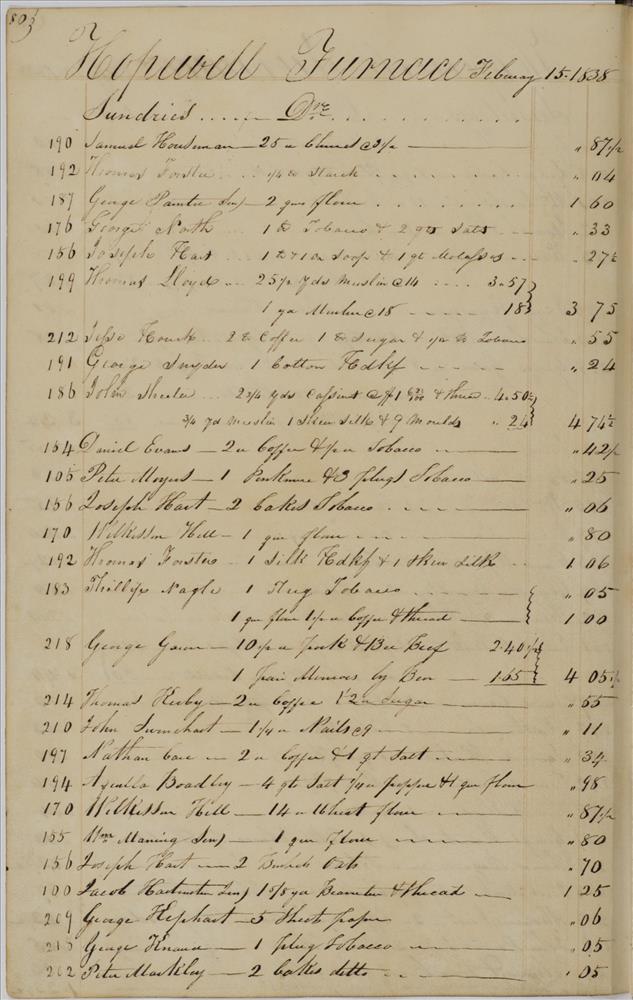 Hopewell Furnace February 15. 1838
Sundries Drs
190 Samuel Houseman — 25 @ 3½ " 87½
192 Thomas Forster ¼ lb Starch " 04
187 George Painter Senr 2 qurs flour 1 60
176 George North 1 lb Tobacco & 2 qts Salt " 33
156 Joseph Hart 1 lb Soap & 1 qt Molasses " 27½
199 Thomas Lloyd 25½ yds Muslin @ 14 3.57
1 yd Muslin @ 18 18 3 75
212 Jesse Houck 2 lb Coffee 1 lb Sugar & ½ lb Tobacco " 55
191 George Snyder 1 Cotton Hdkf " 24
186 John Sheeler 2¾ yds Casinet & thread 4.50½
¾ yd muslin 1 Skein Silk & 9 Moulds " 24 4 74½
154 Daniel Evans — 2 lb Coffee & ½ lb Tobacco " 42½
105 Peter Moyers — 1 Penknive & 3 plugs Tobacco " 25
156 Joseph Hart — 2 Cakes Tobacco " 06
170 Wilkisson Hill — 1 qur flour " 80
192 Thomas Forster 1 Silk Hdkf & 1 Skein Silk 1 06
183 Phillip Nagle 1 Plug Tobacco " 05
1 qur flour 1½ lb Coffee & thread 1 00
218 George — 10½ lb pork & Beef 2.40½
1 pair Monroes by Ben 1.65 4 05½
214 Thomas Kirby — 2 lb Coffee 1 2 lb Sugar " 55
210 John — 1¼ lb Nails @ 9 " 11
197 Nathan Care — 2 lb Coffee & 1 qt Salt " 34
194 Aquilla Boadley — 4 qt Salt ¼ lb pepper & 1 qur flour " 98
170 Wilkisson Hill — 14 lb Wheat flour " 87½
155 Wm Maning Senr — 1 qur flour " 80
156 Joseph Hart — 2 Bushels Oats " 70
100 Jacob Hartmetn Senr 1 5/8 yd & thread 1 25
209 George Hephart — 5 Sheets paper " 06
215 George Knauer — 1 plug Tobacco " 05
202 Peter Markley — 2 Cakes ditto " 05